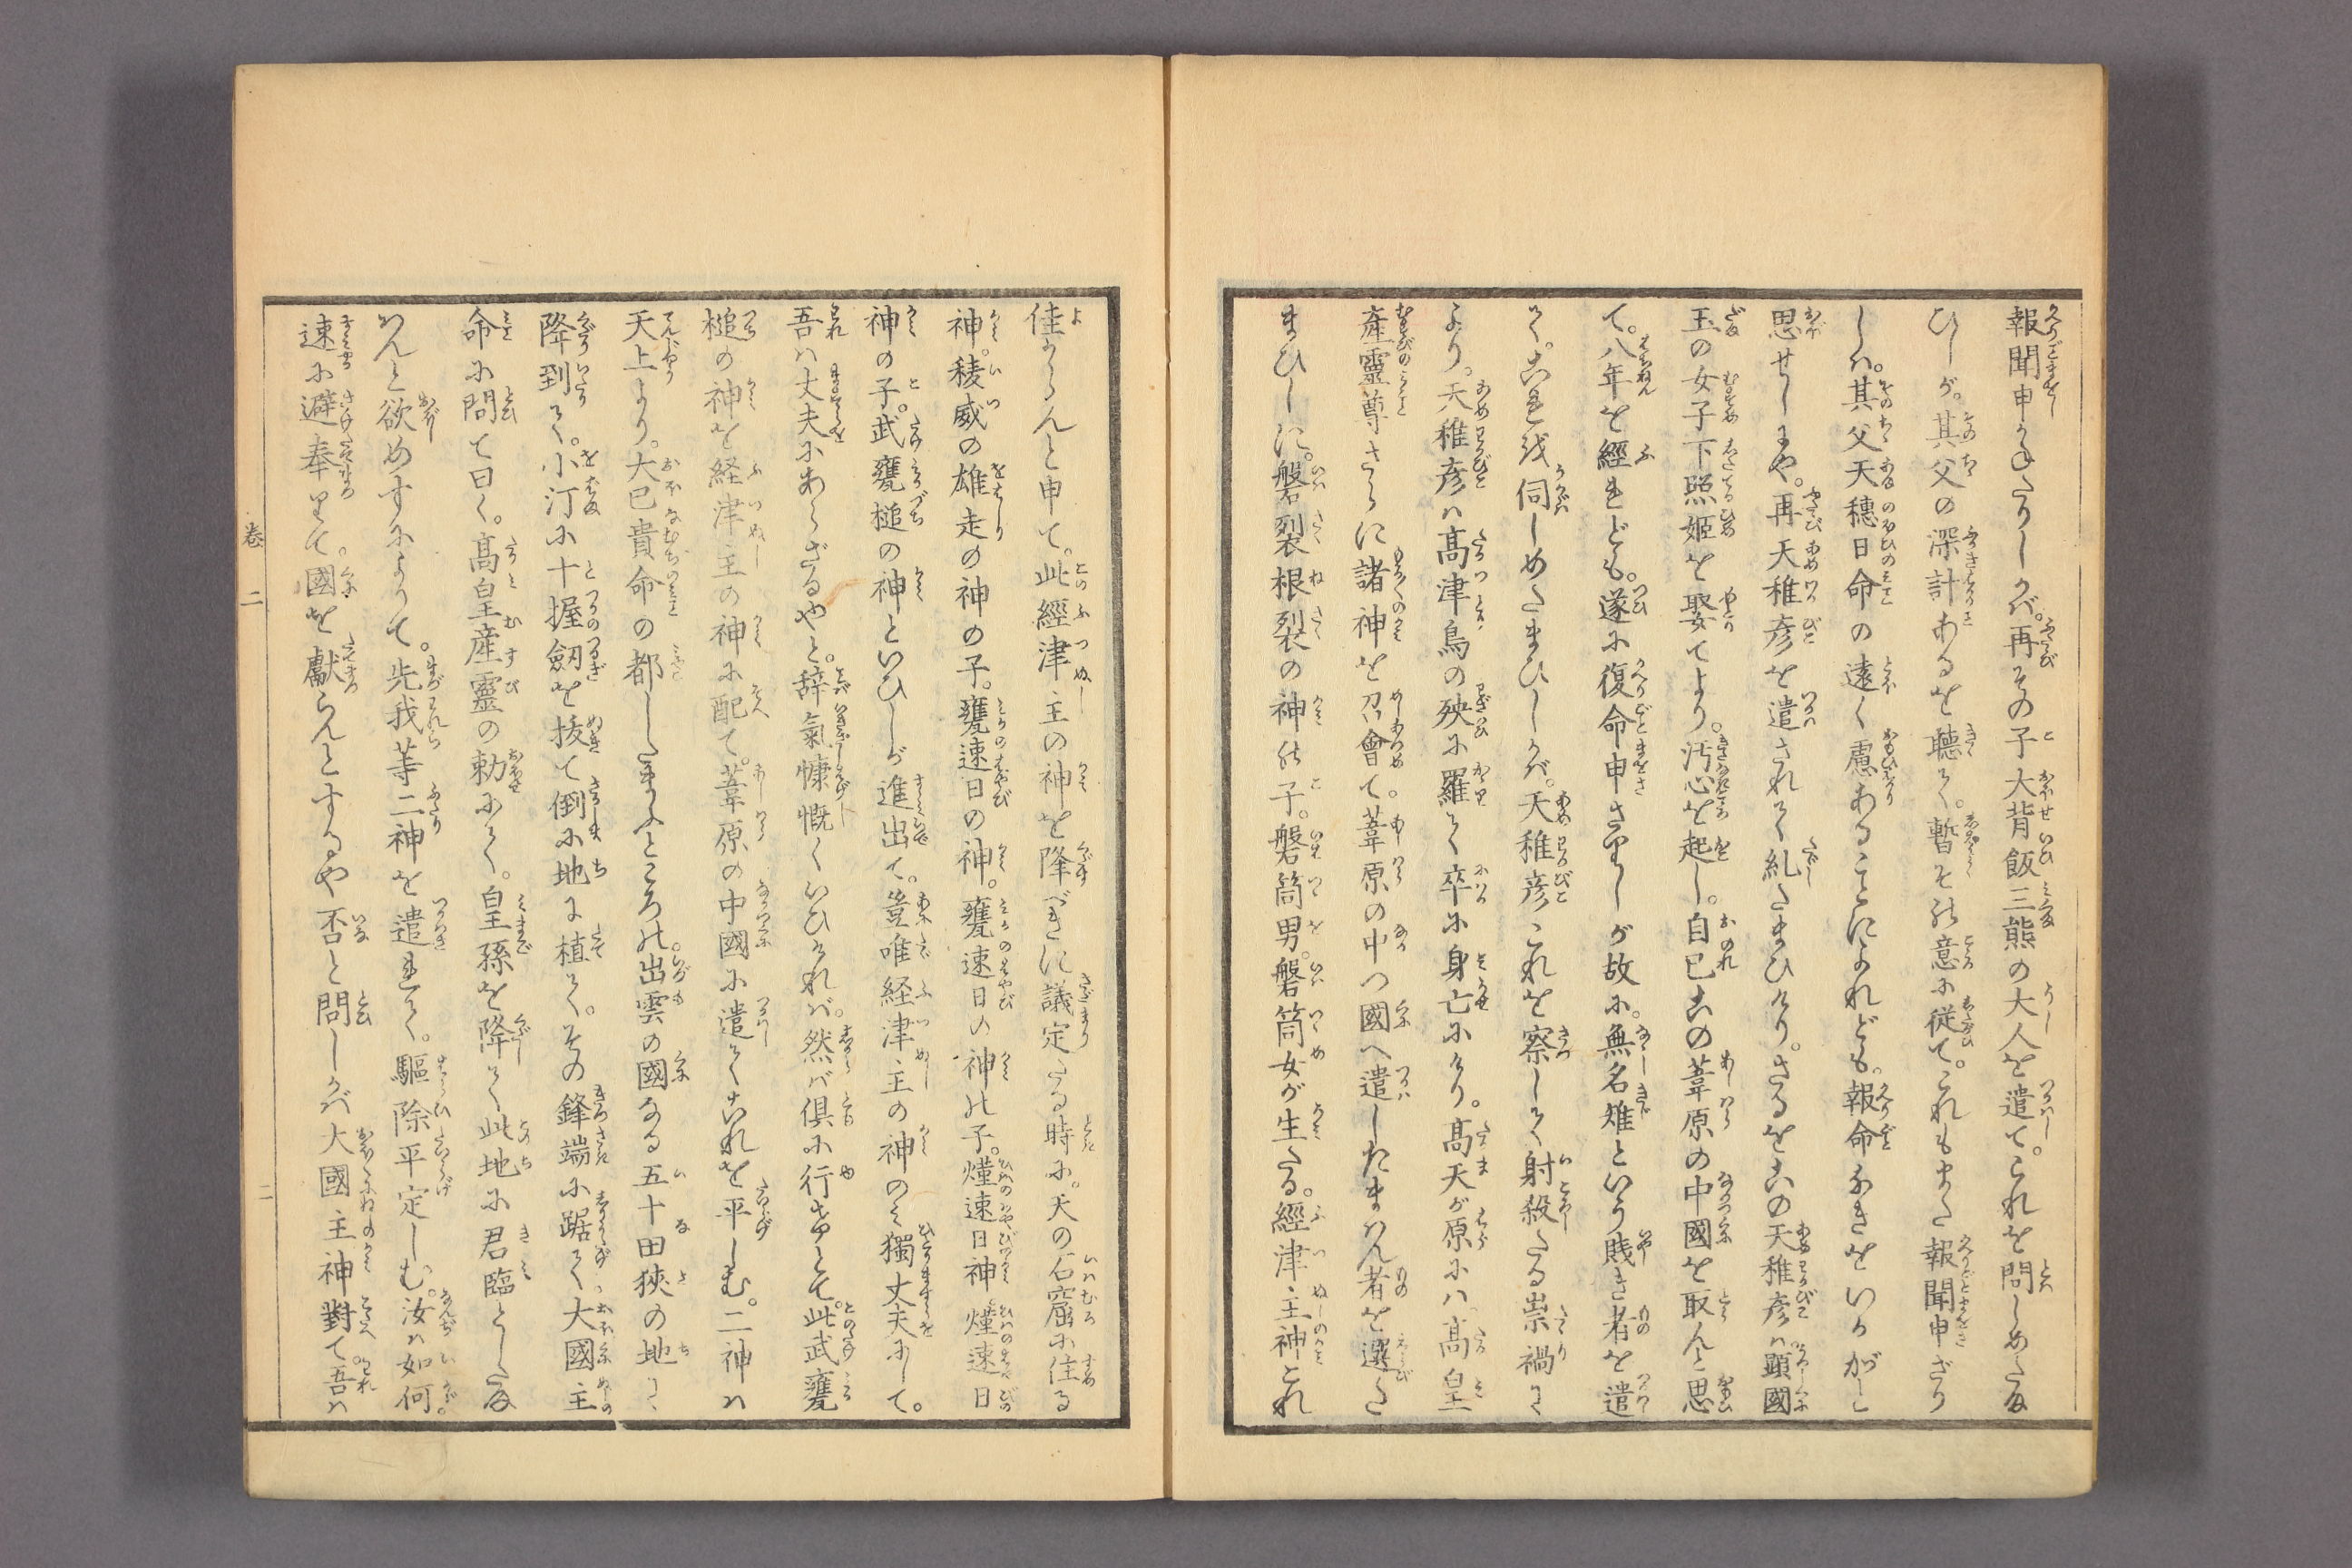 報聞申さゞりしかバ。再その子大背飯三熊の大人を遣て。これを問しめたま
ひしが。其父の深計あるを聴て。暫その意に従て。これもまた報聞申ざり
しハ。其父天穂日命の遠く慮あることによれども。報命なきをいかがしと
思せしにや。再天稚彦を遣されて糺たまひけり。さるをこの天稚彦ハ顕國
玉の女子下照姫を娶てより。汚心を起し。自己この葦原の中國を取んと思
て。八年を經れども。遂に復命申さゞりしが故に。無名雉といふ賎き者を遣
て。これを伺しめたまひしかバ。天稚彦これを察して射殺たる祟禍に
より。天稚彦ハ高津鳥の殃に羅て卒に身亡にけり。高天が原にハ。高皇
産靈尊さらに諸神を召會て。葦原の中つ國へ遣したまはん者を選た
まひしに。磐裂根裂の神の子。磐筒男。磐筒女が生たる。經津主神これ
佳からんと申て。此經津主の神を降べきに議定たる時に。天の石窟に住る
神。稜威の雄走の神の子。甕速日の神。甕速日の神の子。熯速日神熯速日
神の子。武甕槌の神といひしが進出て。豈唯経津主の神のミ獨丈夫にして。
吾ハ丈夫にあらざるやと。辞氣慷慨くいひけれバ。然バ倶に行せとて。此武甕
槌の神を経津主の神に配て。葦原の中國に遣てこれを平しむ。二神ハ
天上より。大已貴命の都したまふところの。出雲の國なる五十田狭の地に
降到て。小汀に十握劔を抜て倒に地に植て。その鋒端に踞て大國主
命に問て曰く。高皇産靈の勅にて。皇孫を降して此地に君臨としたま
はんと欲めすによりて。先我等二神を遣れて。駆除平定しむ。汝ハ如何。
速に避奉りて。國を獻らんとするや否と問しかバ大國主神對て。吾ハ
巻二
二